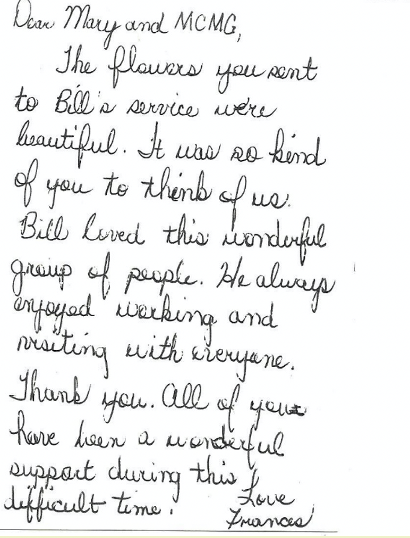 Dear Mary and MCMG,
The flowers you sent
to Bill's service were
beautiful. It was so kind
of you to think of us.
Bill loved this wonderful
group of people. He always
enjoyed working and
visiting with everyone.
Thank you. All of you
have been a wonderful
support during this
difficult time.
Love
Frances